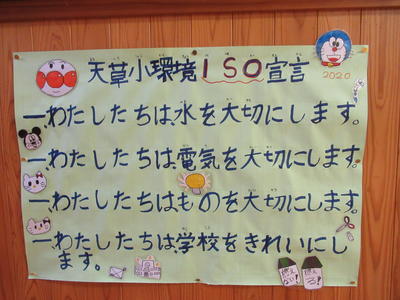 天草小環境ISO宣言
2020
一、わたしたちは、水を大切にします。
一、わたしたちは、電気を大切にします。
一、わたしたちは、ものを大切にします。
一、わたしたちは、学校をきれいにし
ます。
燃えない!
燃える!